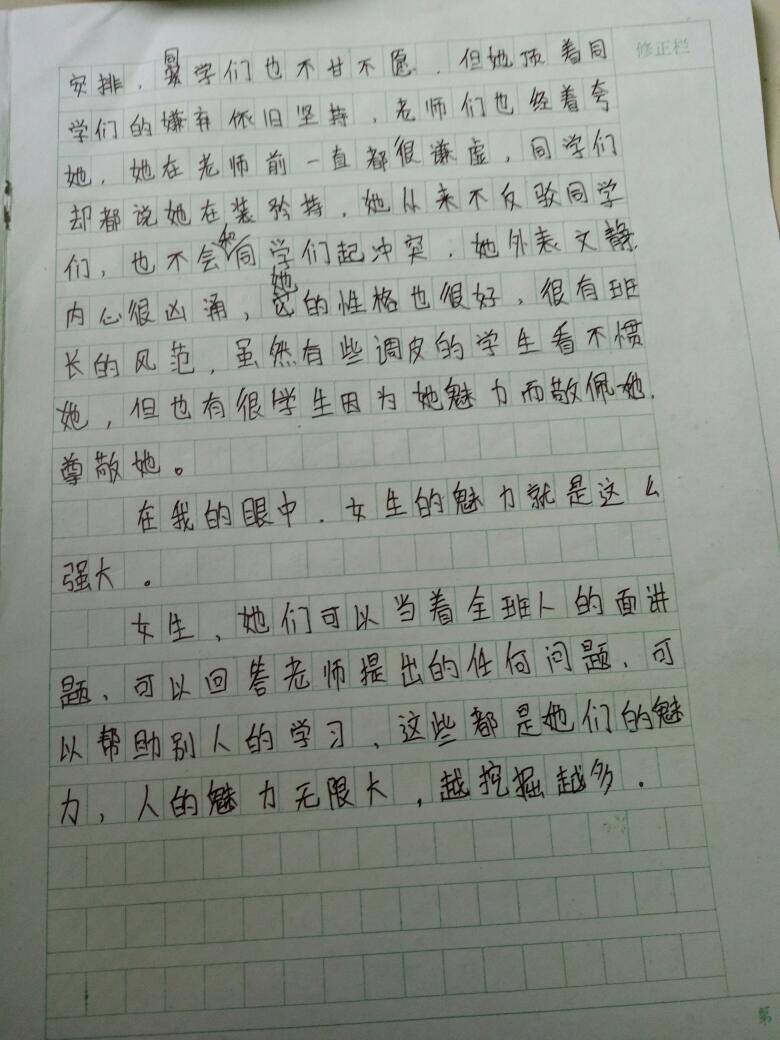 修正栏
安排，同学们也不甘不愿，但她顶着同
学们的嫌弃依旧坚持，老师们也经着夸
她，她在老师前一直都很谦虚，同学们
却都说她在装矜持，她从来不反驳同学
们，也不会和同学们起冲突，她外表文静，
内心很凶涌，她的性格也很好，很有班
长的风范，虽然有些调皮的学生看不惯
她，但也有很学生因为她魅力而敬佩她，
尊敬她。
在我的眼中，女生的魅力就是这么
强大。
女生，她们可以当着全班人的面讲
题、可以回答老师提出的任何问题、可
以帮助别人的学习、这些都是她们的魅
力，人的魅力无限大，越挖掘越多．
第